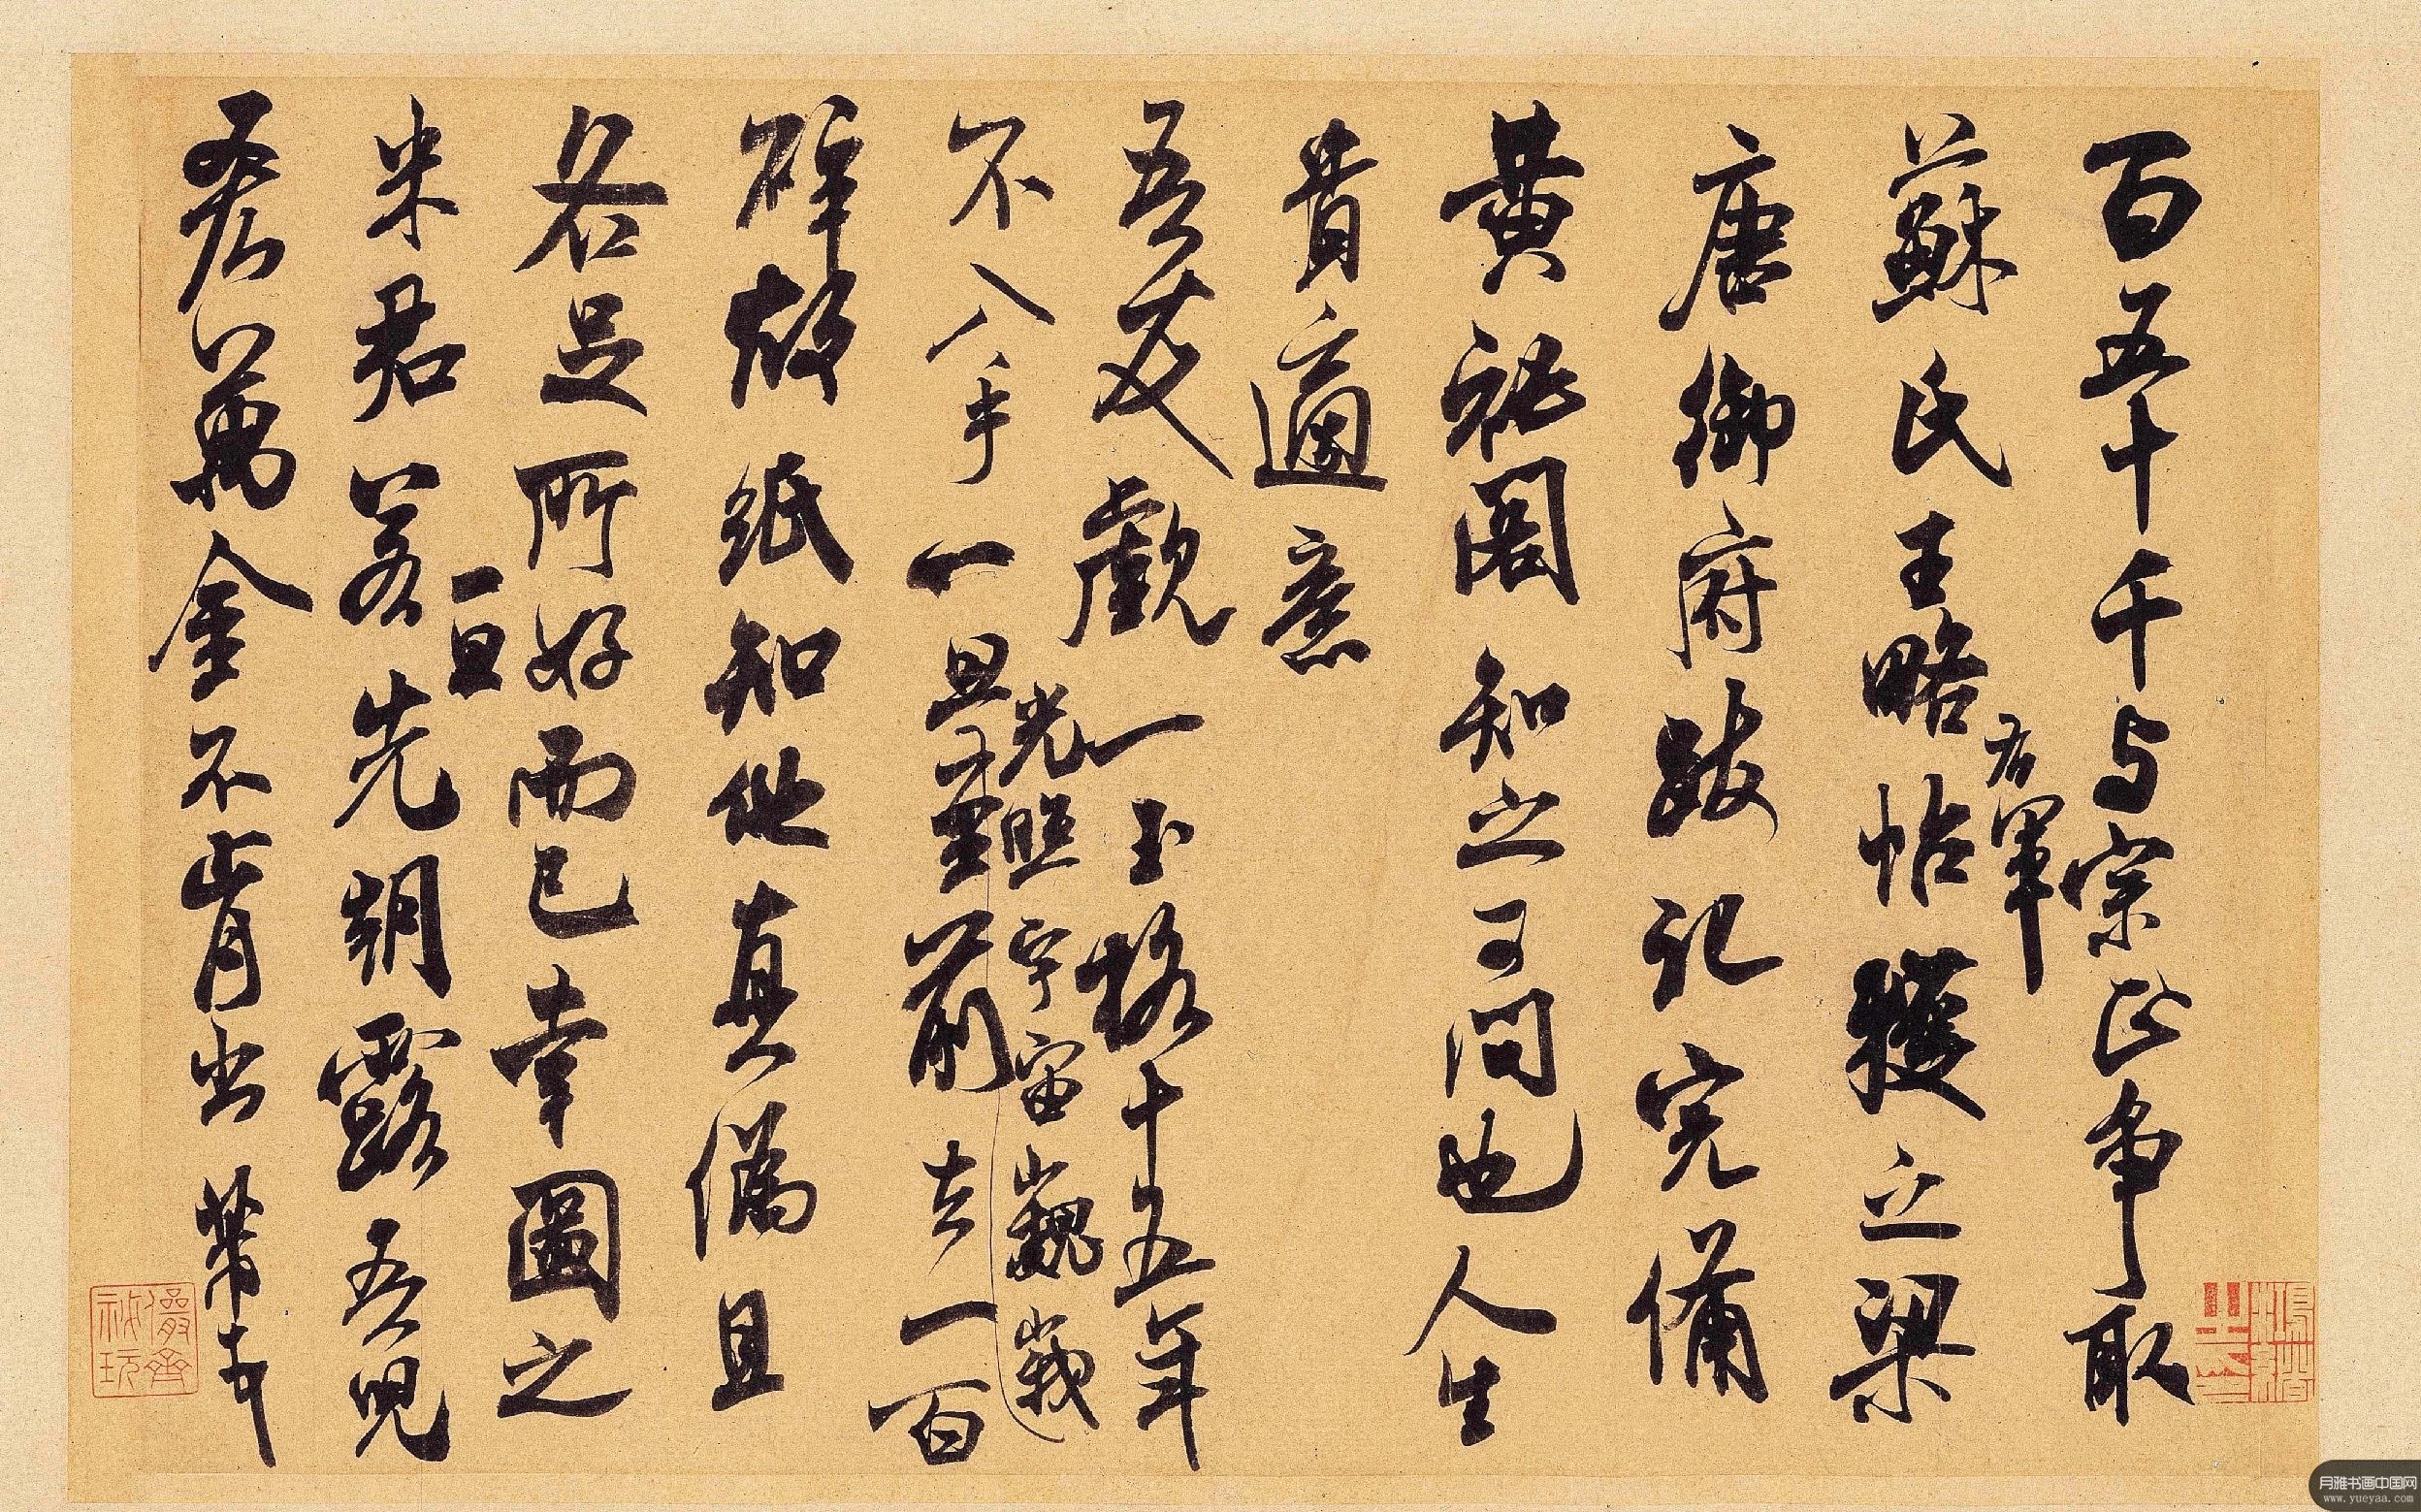 百五十千与宗正争取
蘇氏王略帖右軍獲之梁
唐御府跋记完備
黄秘阁知之可问也人生
貴適意
吾友觀一玉格十五年
不入手一旦光照宇宙巍峩至前去一百
碎故紙知他真偽且
各足所好而已幸圖之
米君若一旦先朝露吾兒
吝萬金不肯出芾頓首
儼齋秘玩
月雅书画中国网
www.yueyaa.com